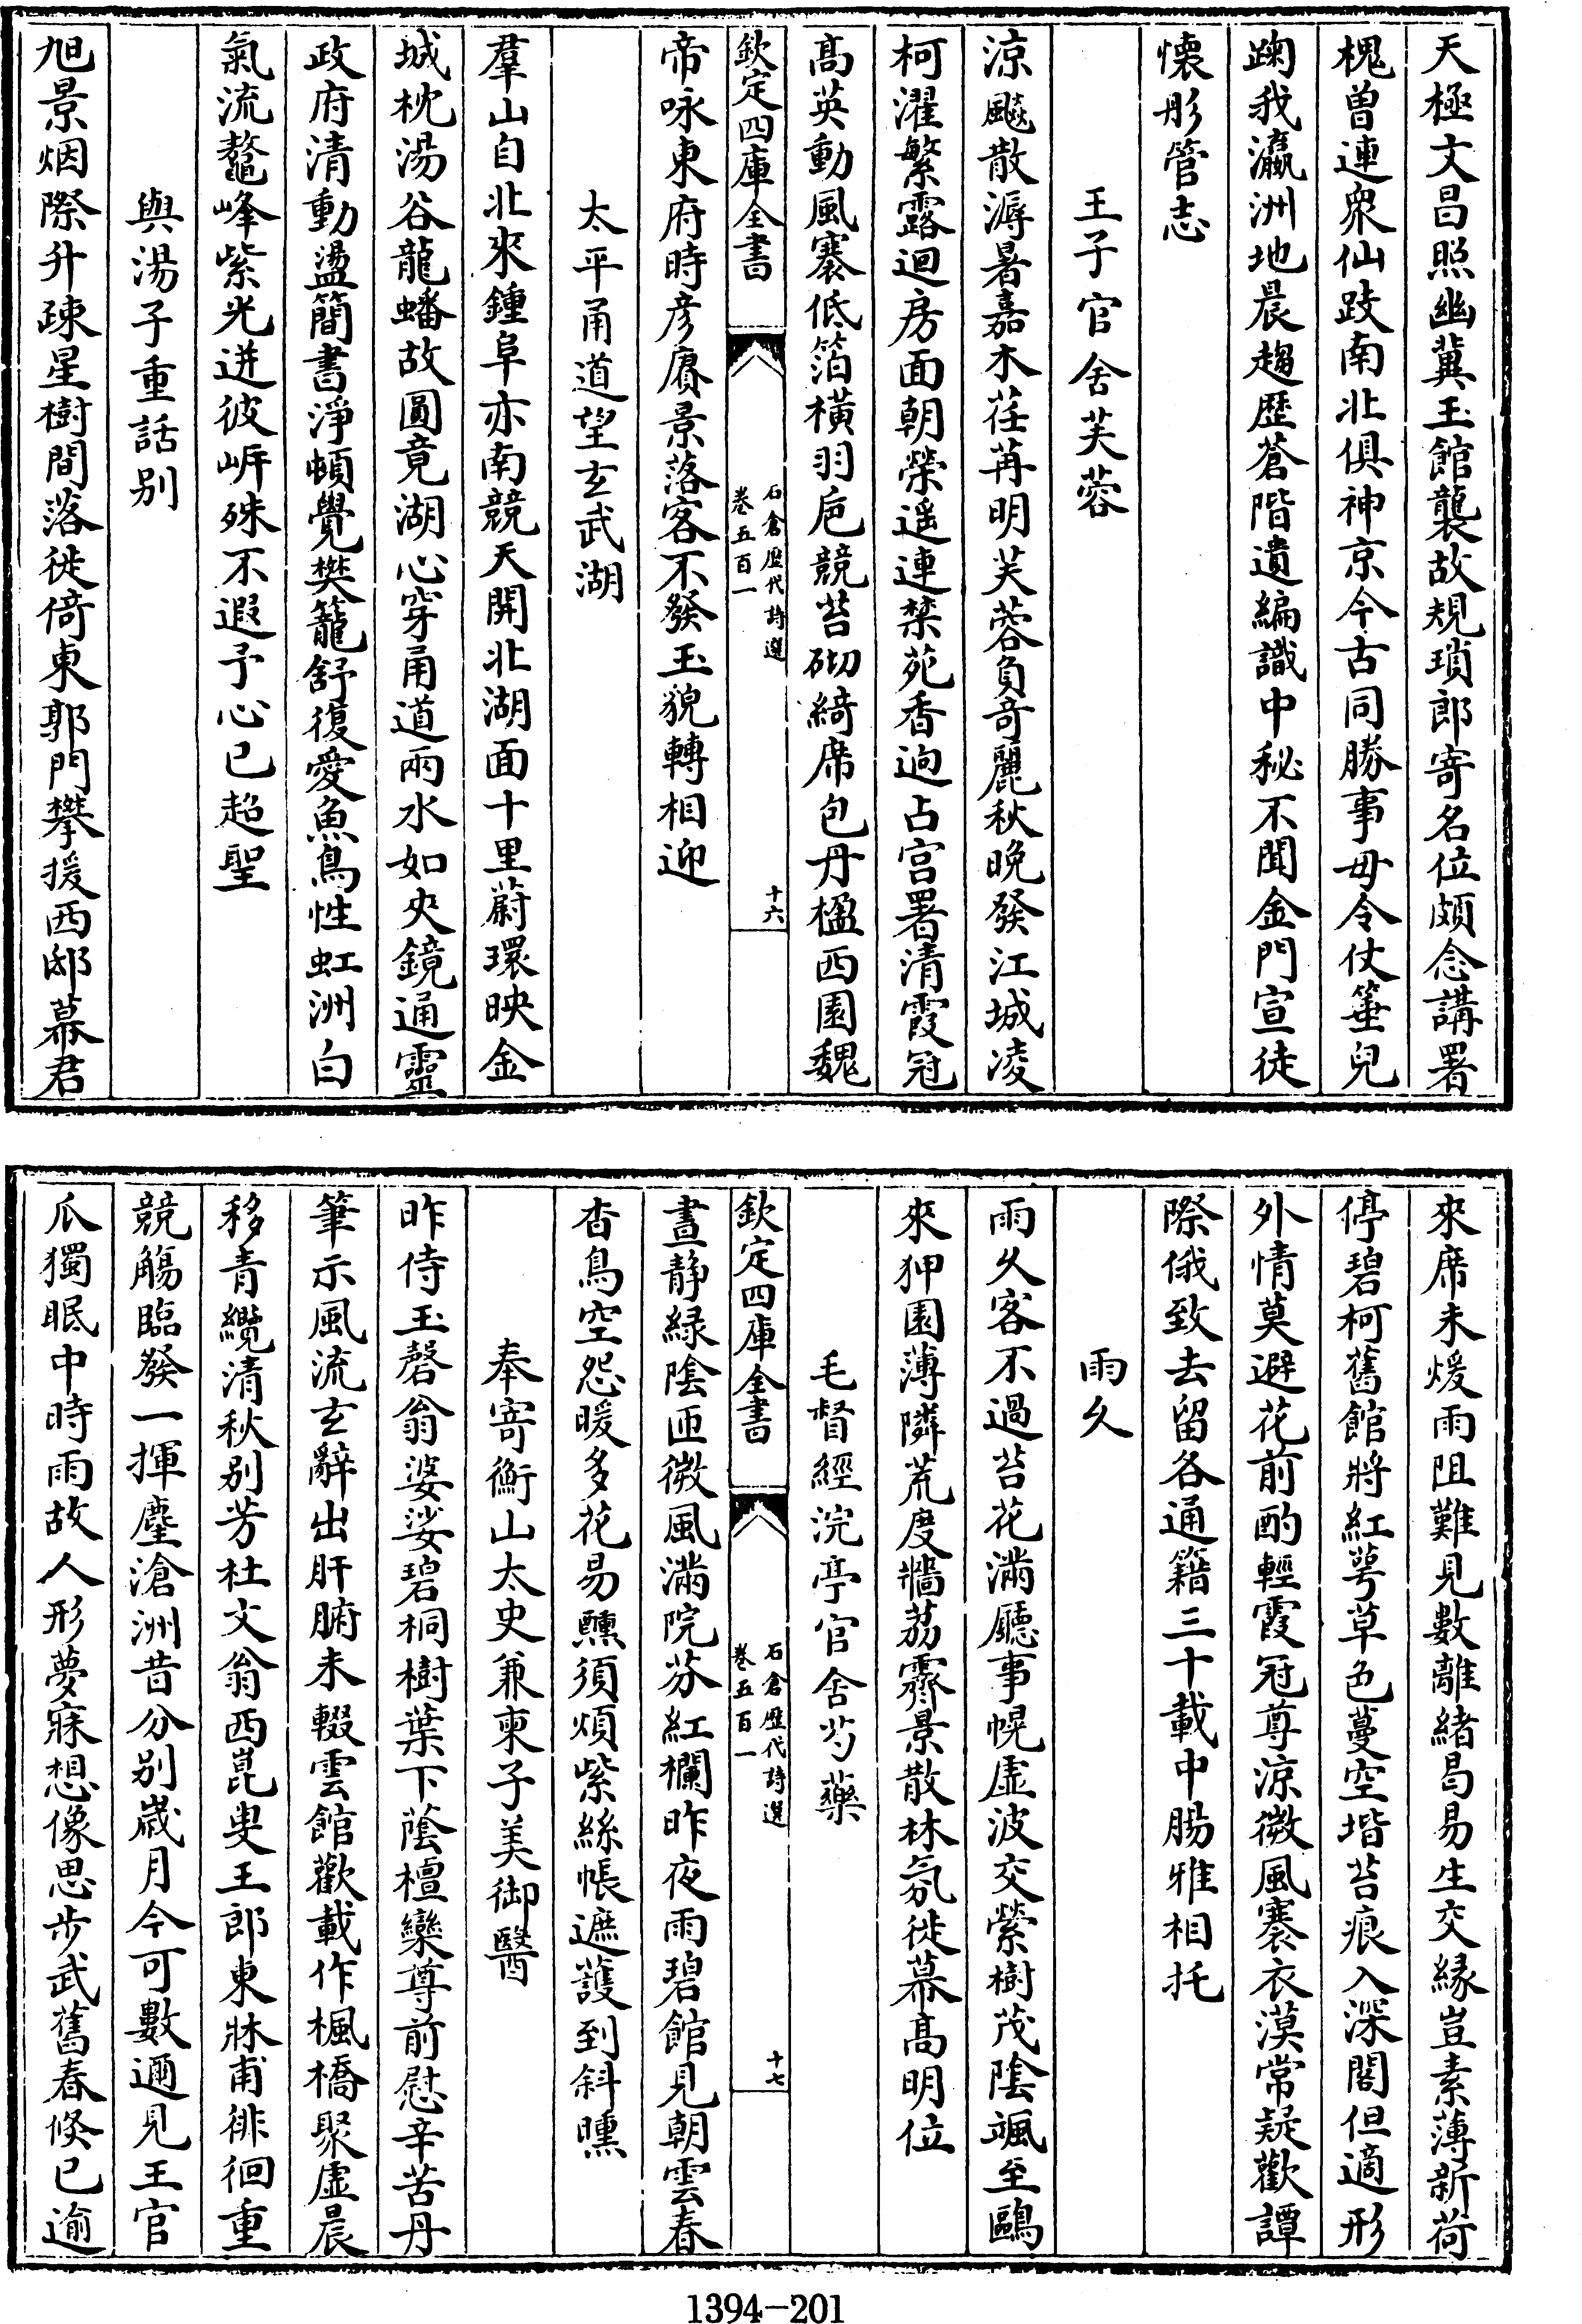 天極文昌照幽冀玉館襲故規瑣郎寄名位頗念講署
槐曽連衆仙跂南北俱神京今古同勝事毋令仗箠兒
踘我瀛洲地晨趨歷蒼階遺編識中秘不聞金門宣徒
懐彤管志
王子官舍芙蓉
涼飈散溽暑嘉木荏苒明芙蓉負竒麗秋晚發江城凌
柯濯繁露迴房面朝榮遥連禁苑香逈占宫署清霞冠
髙英動風褰低箔横羽巵競苔砌綺席包丹楹西園魏
欽定四庫全書
石倉歷代詩選
卷五百一
十六
帝咏東府時彦賡景落客不發玉貌轉相迎
太平甬道望玄武湖
羣山自北來鍾阜亦南競天開北湖面十里蔚環映金
城枕湯谷龍蟠故圓竟湖心穿甬道兩水如夾鏡通靈
政府清動盪簡書淨頓覺樊籠舒復愛魚鳥性虹洲白
氣流鼇峰紫光迸彼岍殊不遐予心已超聖
與湯子重話别
旭景烟際升疎星樹間落徙倚東郭門攀援西邸幕君
來席未煖雨阻難見數離緒曷易生交縁豈素薄新荷
停碧柯舊館將紅萼草色蔓空堦苔痕入深閣但適形
外情莫避花前酌輕霞冠尊涼微風褰衣漠常疑歡譚
際俄致去留各通籍三十載中腸雅相托
雨久
雨久客不過苔花滿廳事幌虚波交縈樹茂陰颯至鷗
來狎園薄隣荒度牆荔霽景散林氛徙幕髙明位
毛督經浣亭官舍芍藥
欽定四庫全書
石倉歷代詩選
卷五百一
十七
晝静緑陰匝微風滿院芬紅欄昨夜雨碧館見朝雲春
杳鳥空怨暖多花易醺須煩紫絲帳遮䕶到斜曛
奉寄衡山太史兼柬子美御醫
昨侍玉磬翁婆娑碧桐樹葉下蔭檀欒尊前慰辛苦丹
筆示風流玄辭出肝腑未輟雲館歡載作楓橋聚虚晨
移青纜清秋别芳杜文翁西崑叟王郎東牀甫徘徊重
競觴臨發一揮塵滄洲昔分别歲月今可數邇見王官
爪獨眠中時雨故人形夢寐想像思步武舊春倐已逾
1394-201